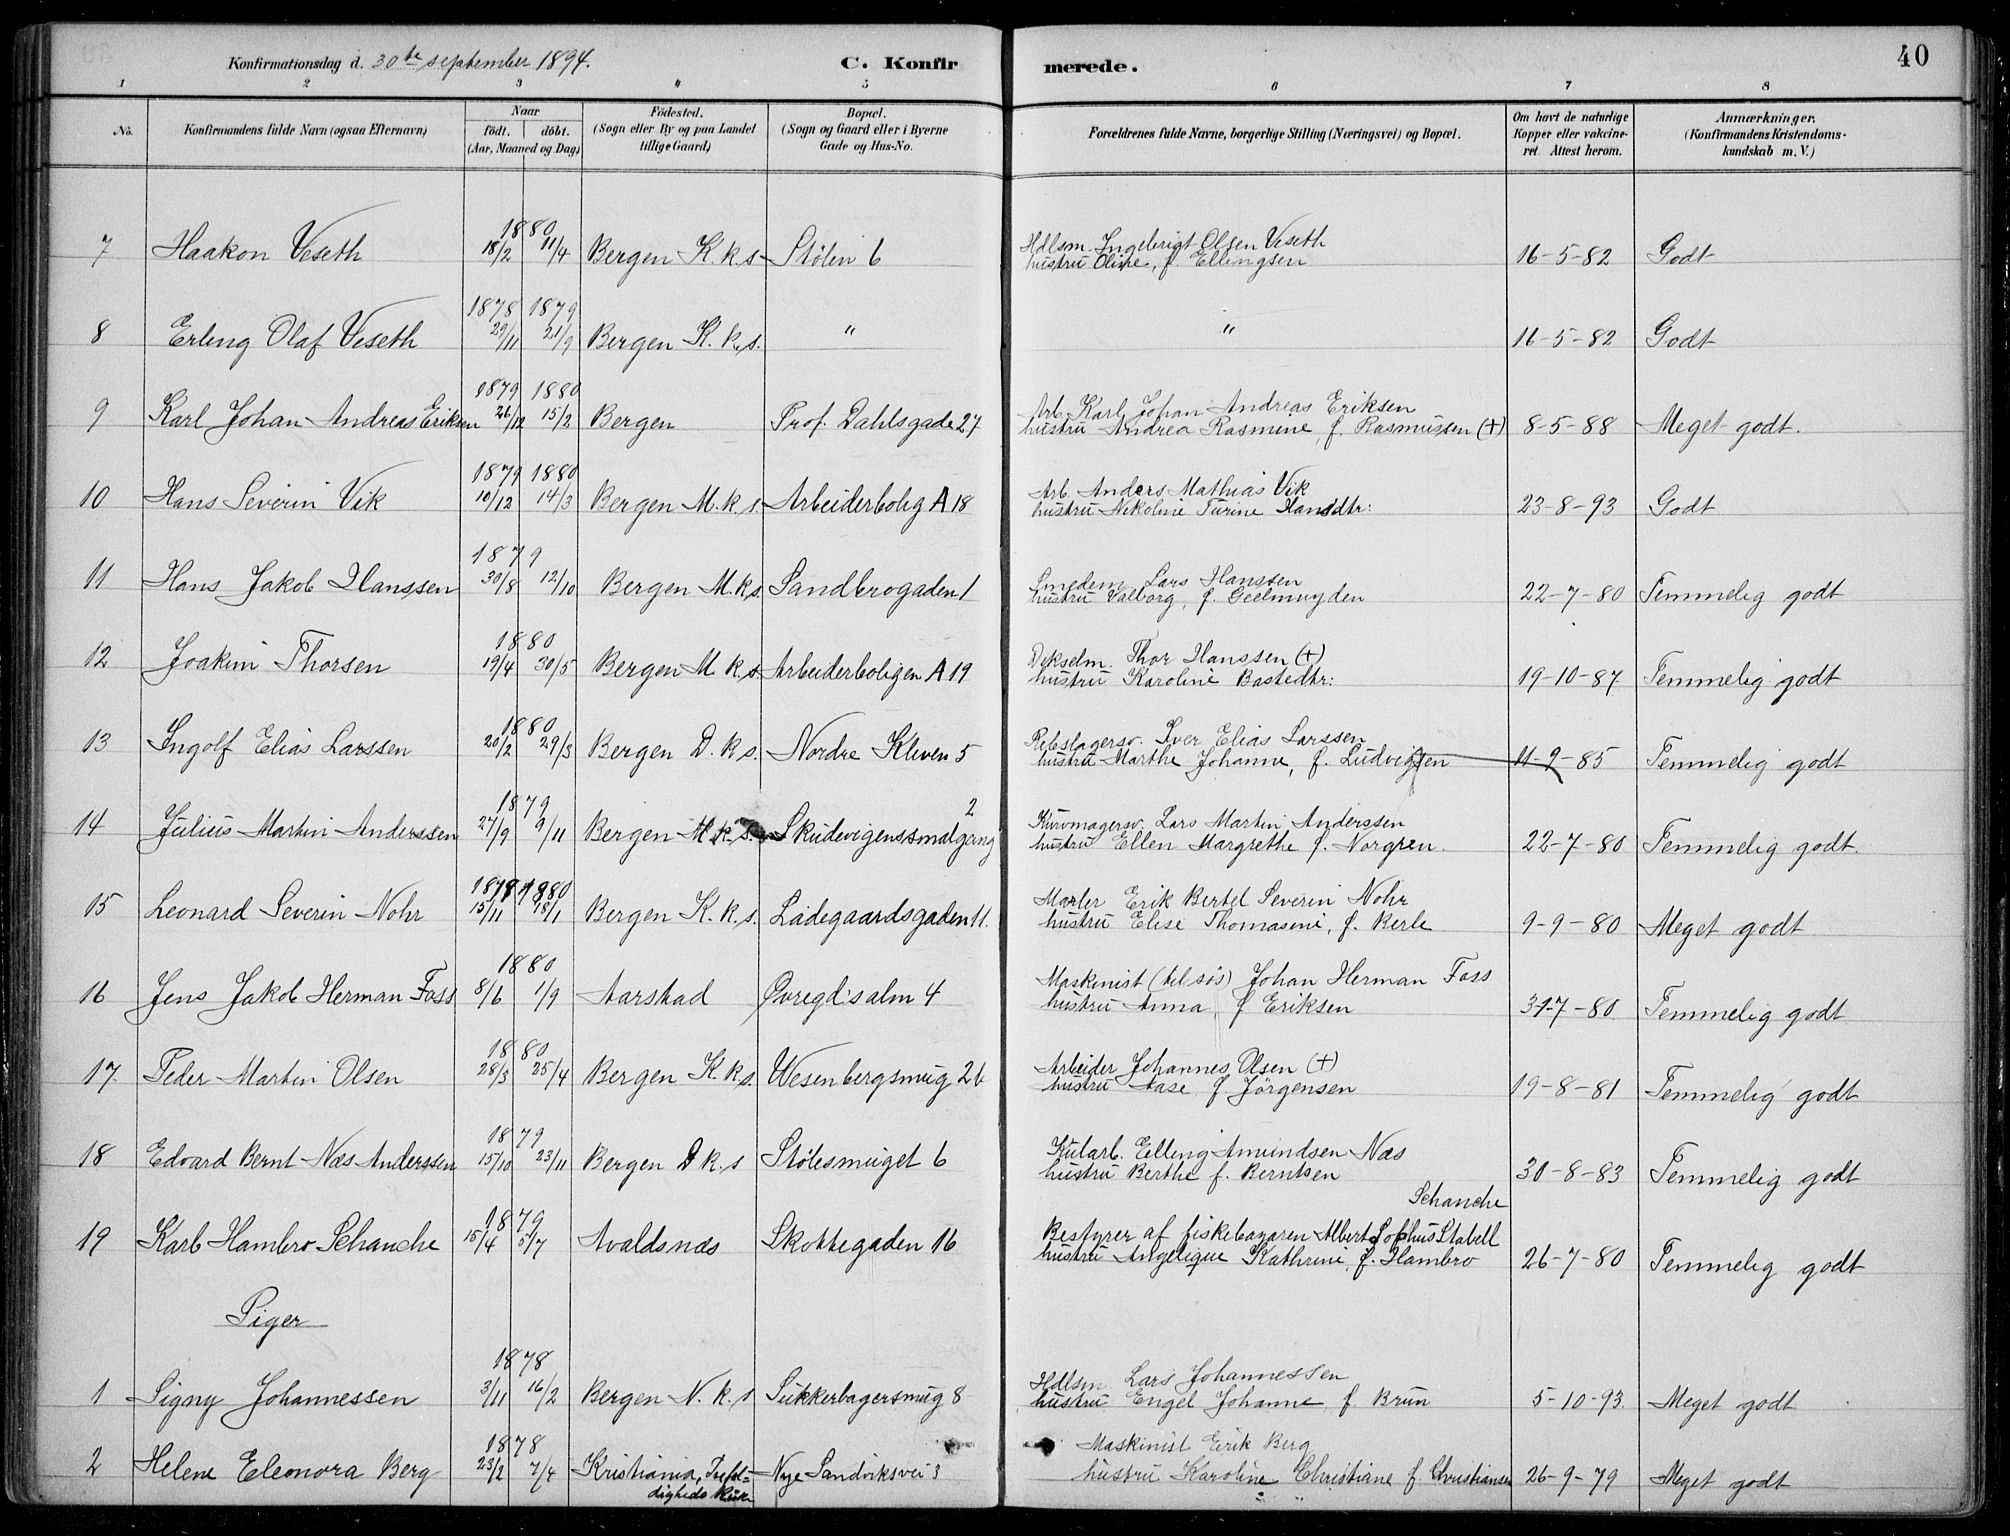 Konfirmationsdag d. 30te september 1894. C. Konfirmerede. 40
1 2 3 4 5 6 7 8
No. Konfirmandens fulde Navn (ogsaa Efternavn) Naar født. døbt. (Aar, Maaned og Dag) Födested. (Sogn eller By og paa Landet tillige Gaard) Bopæl. (Sogn og Gaard eller i Byerne Gade og Hus-No. Forældrenes fulde Navne, borgerlige Stilling (Næringsvei) og Bopæl. Om havt de naturlige Kopper eller vakcineret. Attest herom. Anmærkninger. (Konfirmandens Kristendomskundskab m. V.)
1880
7 Haakon Veseth 18/2 11/4 Bergen K. k. s. Stølen 6 Hdlsm. Ingebrigt Olsen Veseth
hustru Oline, f. Ellingsen 16-5-82 Godt
1878 1879
8 Erling Olaf Veseth 29/11 21/9 Bergen K. k. s. " " 16-5-82 Godt
1879 1880
9 Karl Johan Andreas Eriksen 26/12 15/2 Bergen Prof. Dahlsgade 27 Arb. Karl Johan Andreas Eriksen
hustru Andrea Rasmine, f. Rasmussen (+) 8-5-88 Meget godt.
1879 1880
10 Hans Severin Vik 10/12 14/3 Bergen M. k. s. Arbeiderbolig A 18 Arb. Anders Mathias Vik
hustru Nikoline Turine Hansdtr: 23-8-93 Godt
1879
11 Hans Jakob Hanssen 30/8 12/10 Bergen M. k. s. Sandbrogaden 1 Smedem. Lars Hanssen
hustru Valborg, f. Geelmuyden 22-7-80 Temmelig godt
1880
12 Joakim Thorsen 19/4 30/5 Bergen M. k. s. Arbeiderboligen A 19 Dækselm. Thor Hanssen (+)
hustru Karoline Bastedtr: 19-10-87 Temmelig godt
1880
13 Ingolf Elias Larssen 20/2 29/3 Bergen D. k. s. Nordre Kleven 5 Rebslagersv. Iver Elias Larssen
hustru Marthe Johanne, f. Ludvigsen 11-9-85 Temmelig godt
1879
14 Julius Martin Anderssen 27/9 9/11 Bergen M. k. s. Skudevigenssmalgang 2 Kurvmagersv. Lars Martin Anderssen
hustru Ellen Margrethe f. Norgren. 22-7-80 Temmelig godt.
1879 1880
15 Leonard Severin Nohr 15/11 18/1 Bergen K. k. s. Ladegaardsgaden 11. Maler Erik Bertel Severin Nohr
hustru Elise Thomasine, f. Berle 9-9-80 Meget godt
1880
16 Jens Jakob Herman Foss 8/6 1/9 Aarstad Øvregdsalm 4 Maskinist (til søs) Johan Herman Foss
hustru Anna f Eriksen 31-7-80. Temmelig godt
1880
17. Peder Martin Olsen 28/3 25/4 Bergen K. k. s. Wesenbergsmug 2b Arbeider Johannes Olsen (+)
hustru Aase f. Jørgensen 19-8-81 Temmelig godt
1879
18 Edvard Bernt Næs Anderssen 15/10 23/11 Bergen D k. s Stølesmuget 6 Kularb. Elling Amundsen Næs
hustru Berthe f. Berntsen 30-8-83 Temmelig godt
1879
19 Karl Hambro Schanche 15/4 5/7 Avaldsnæs Skottegaden 16 Bestyrer af fiskebazaren Albert Sophus Stabell Schanche
hustru Angelique Kathrine, f. Hambro 26-7-80 Temmelig godt
Piger
1878
1 Signy Johannessen 3/11 16/2 Bergen N. k. s Sukkerbagersmug 8 Hdlsm. Lars Johannessen
hustru Engel Johanne f. Brun 5-10-93. Meget godt
1878
2 Helene Eleonora Berg 23/2 7/4 Kristiania, Trefoldigheds kirke Nye Sandviksvei 3 Maskinist Erik Berg
hustru Karoline Christiane f. Christiansen 26-9-79 Meget godt